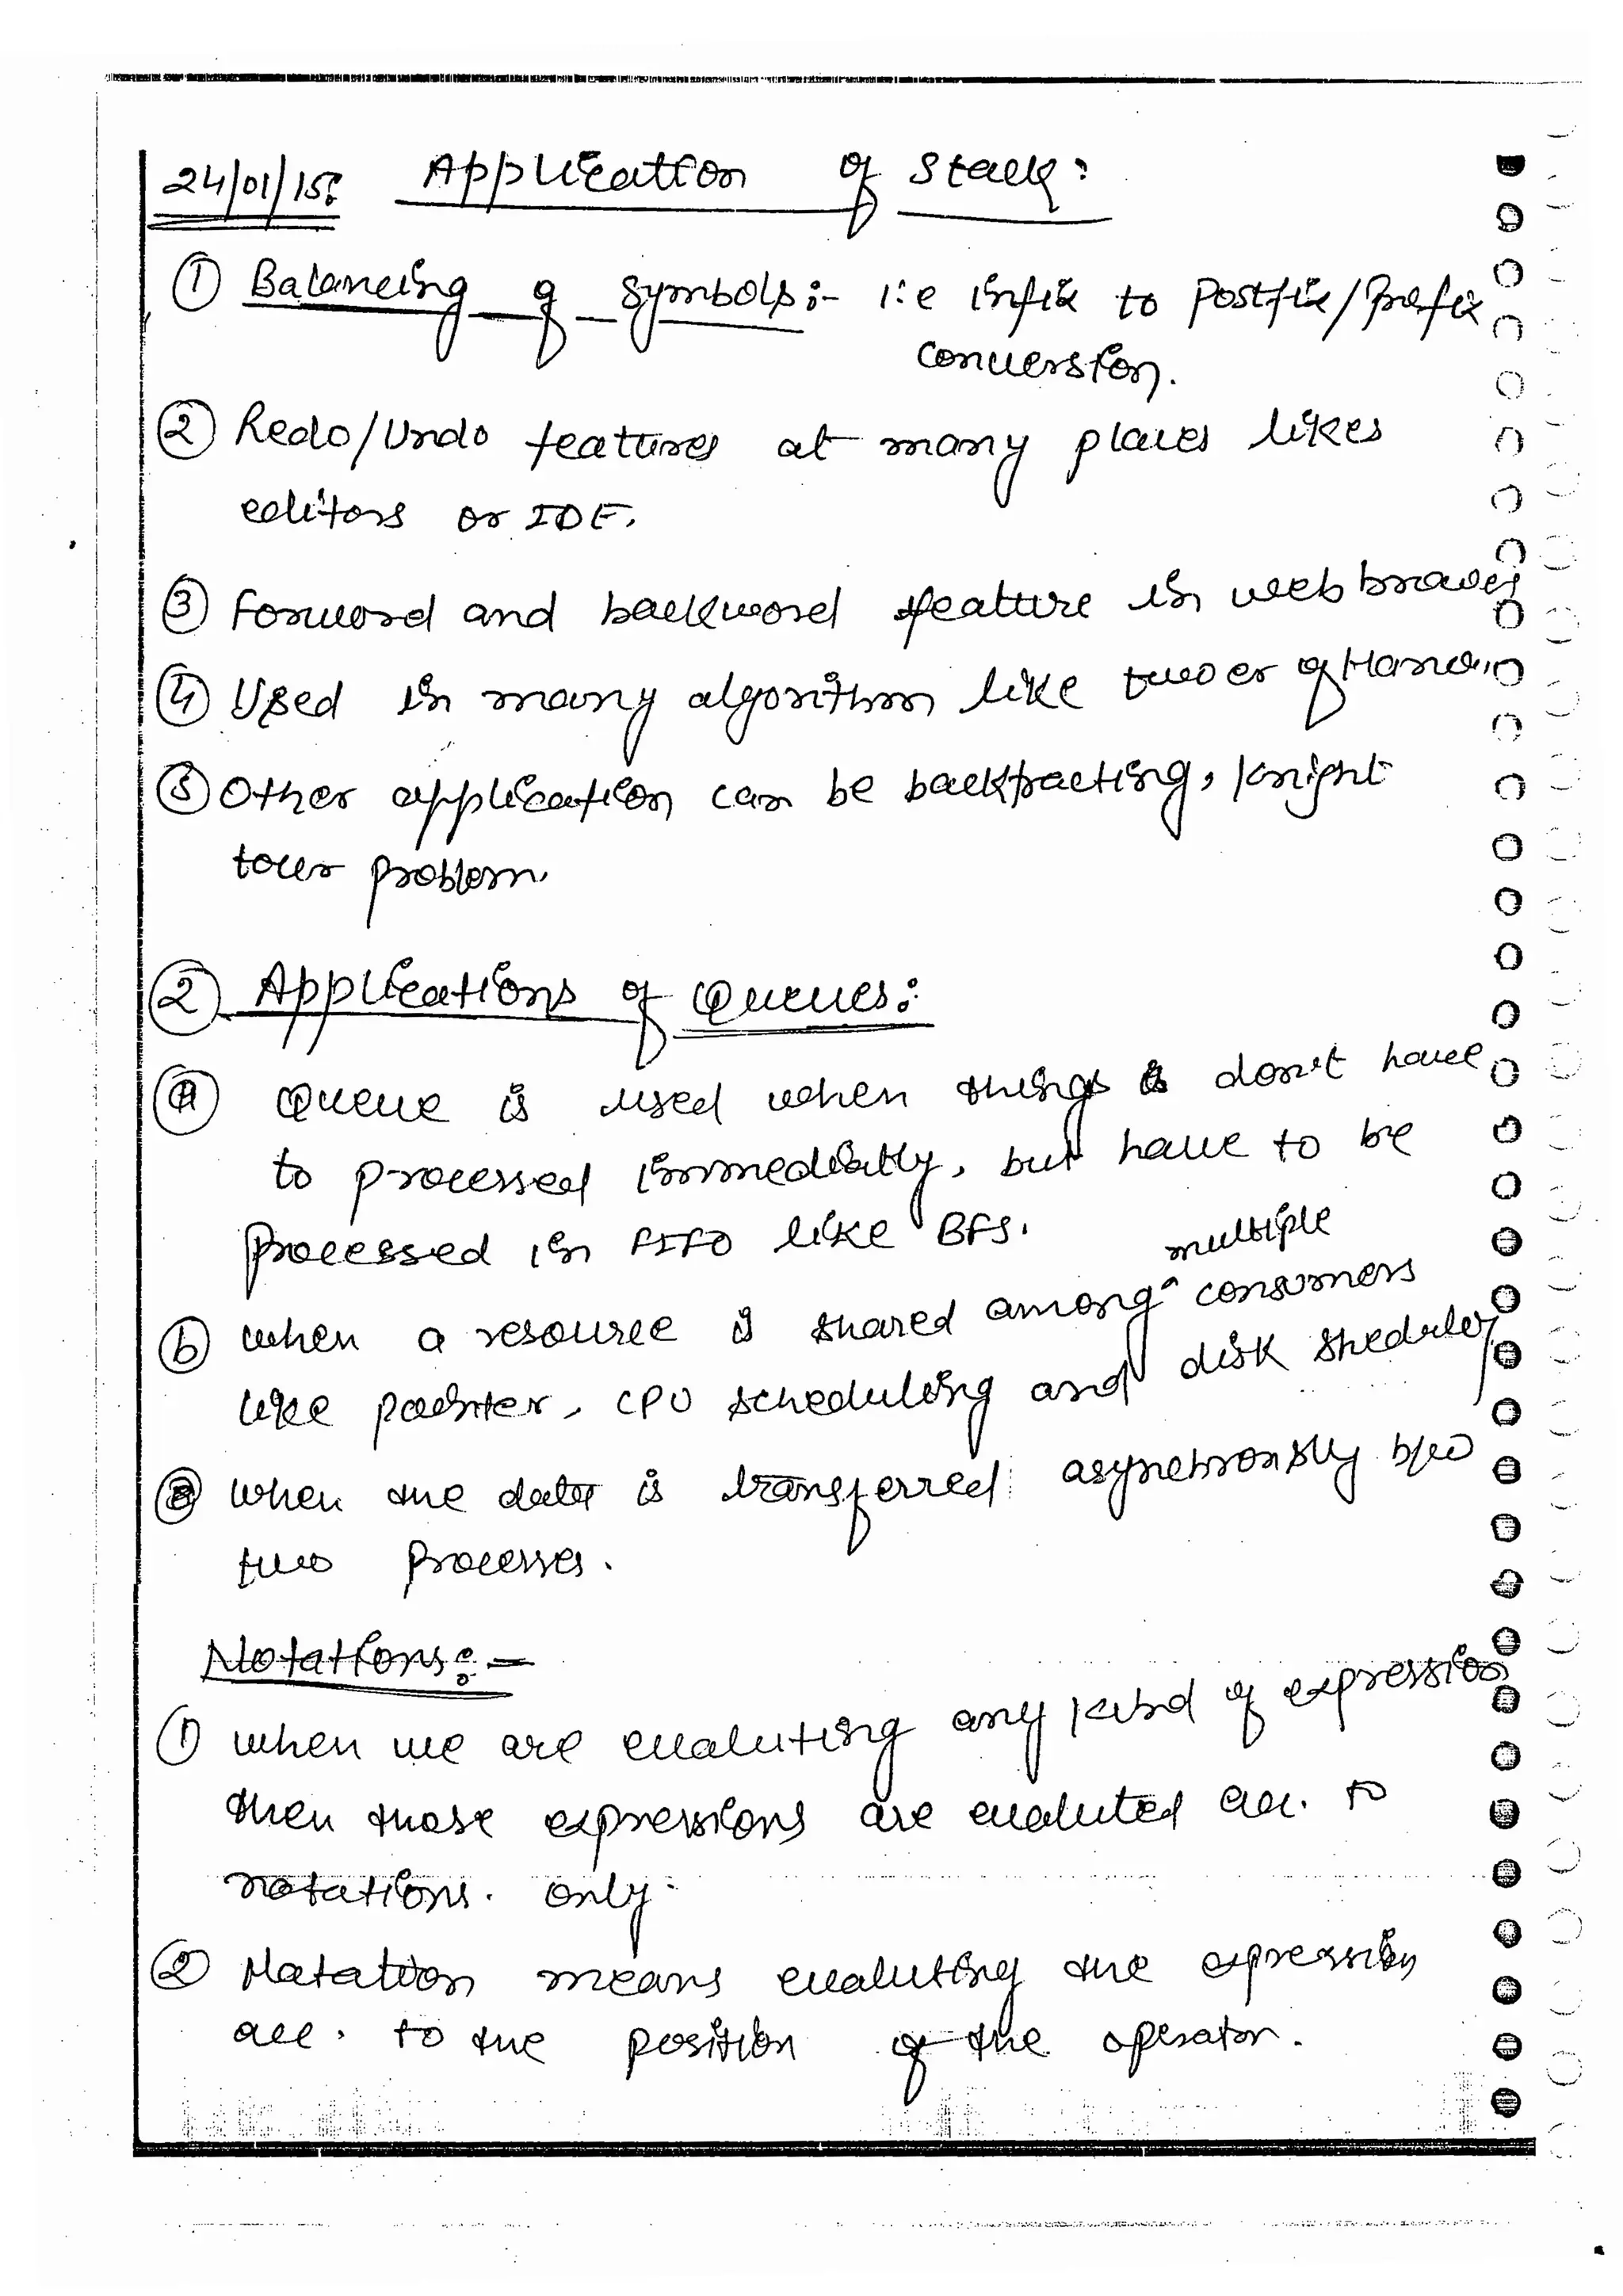 24/01/15: Application of Stack:
① Balancing of symbols:- i.e infix to Postfix/Prefix
conversion.
② Redo/Undo features at many places likes
editors or IDE.
③ Forword and backword feature in web browses
④ Used in many algorithm like tower of Hanoi
⑤ Other application can be backtracting, knight
tour problem.
② Applications of Queues:
ⓐ Queue is used when things don't have
to processed immediatly, but have to be
processed in FIFO like BFS.
multiple
ⓑ when a resource is shared among ^ consumers
like painter, CPU scheduling and disk sheduley
when the data is transferred asynchronsly b/w
two processes.
Notations:-
① when we are evaluting any kind of expression
then those expressions are evaluted acc. to
notations. only.
② Notation means evaluting the expression
acc. to the position of the operator.